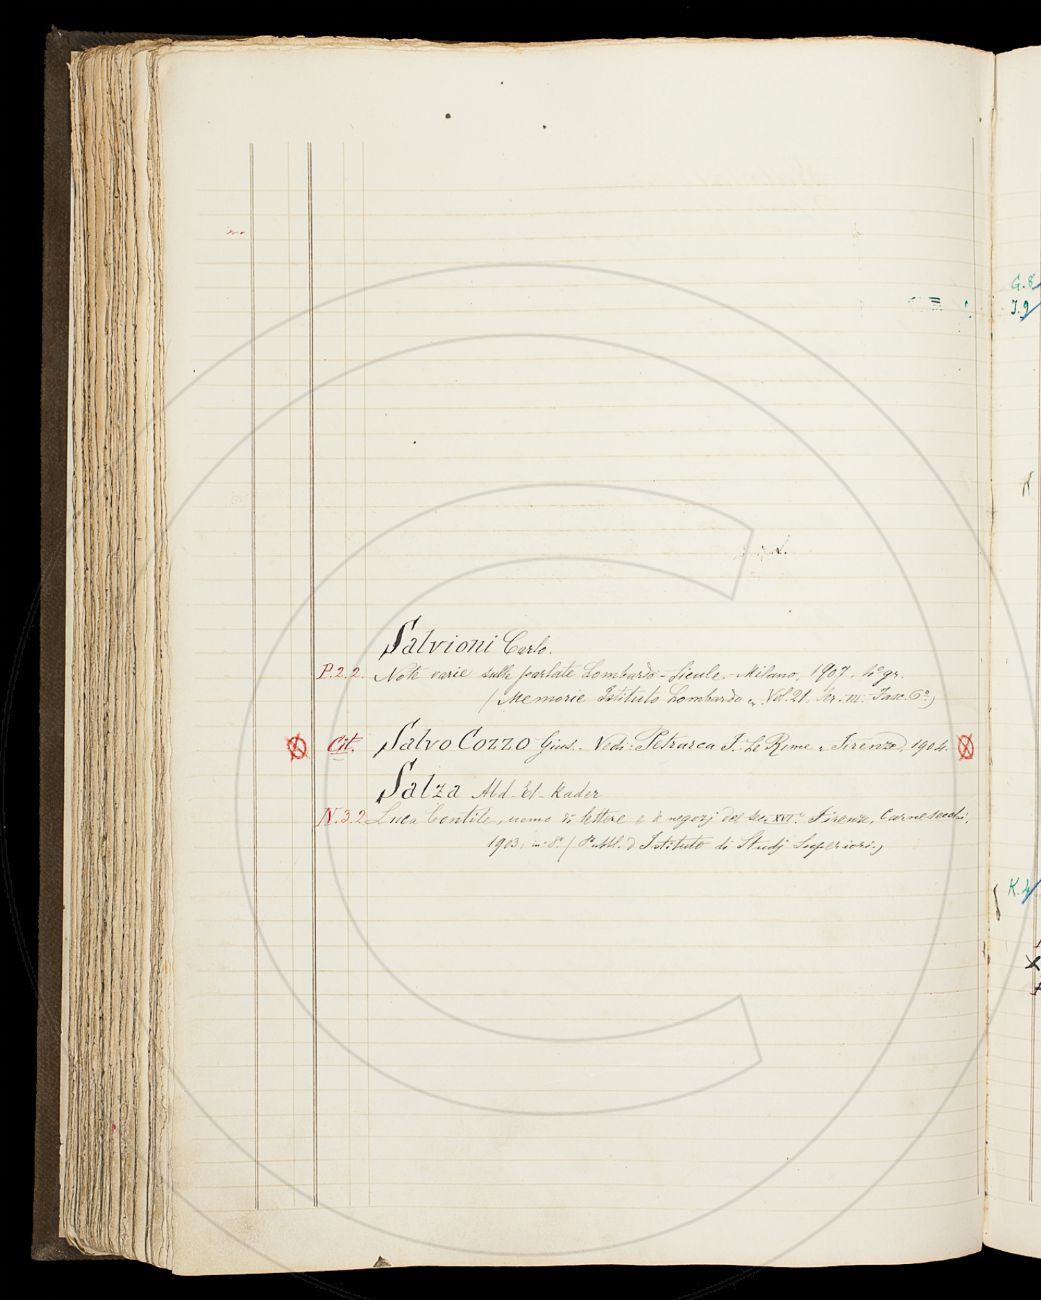 Salvioni Carlo.
P.2.2. Note varie sulle parlate Lombardo-Sicule. - Milano, 1907. 4° gr.
(Memorie Istituto Lombardo Vol. 21. Ser. III. Fasc. 6°.)
Cit. Salvo Cozzo Gius. - Vedi: Petrarca F. Le Rime. Firenze, 1904.
Salza Abd-El-Kader
N.3.2 Luca Contile, uomo di lettere e di negozj del sec. XVI.° Firenze, Carnesecchi,
1903, in-8° (Pubbl. d Istituto di Studj Superiori.)
G.8
I.9
K.4